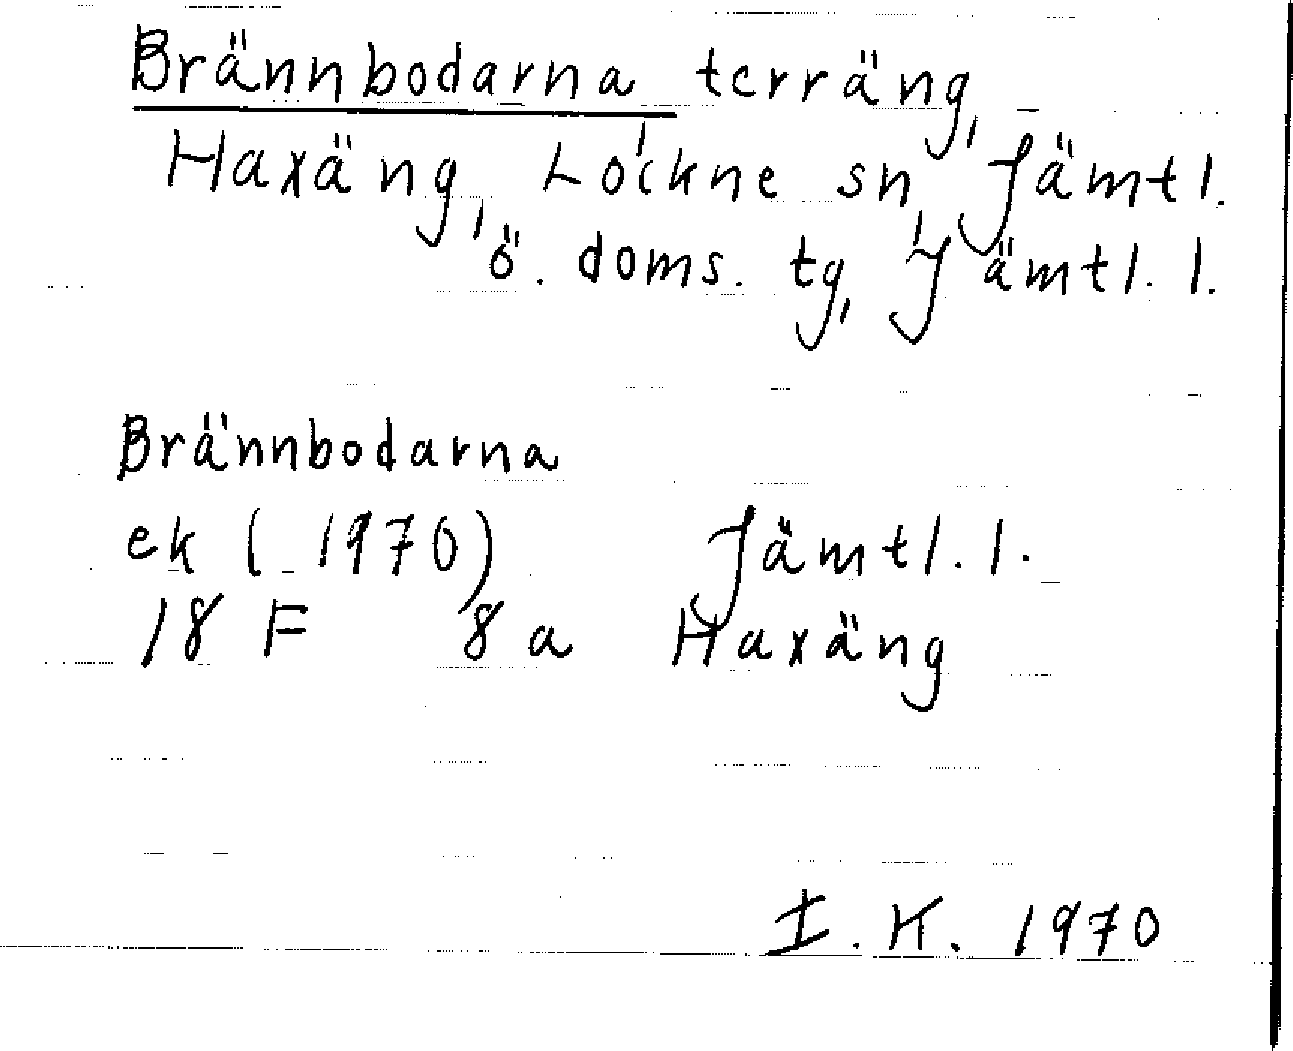 Brännbodarna terräng,
Haxäng, Lockne sn, Jämtl.
ö. doms. tg, Jämtl. l.
Brännbodarna
ek (1970) Jämtl. l.
18 F 8 a Haxäng
I. K. 1970